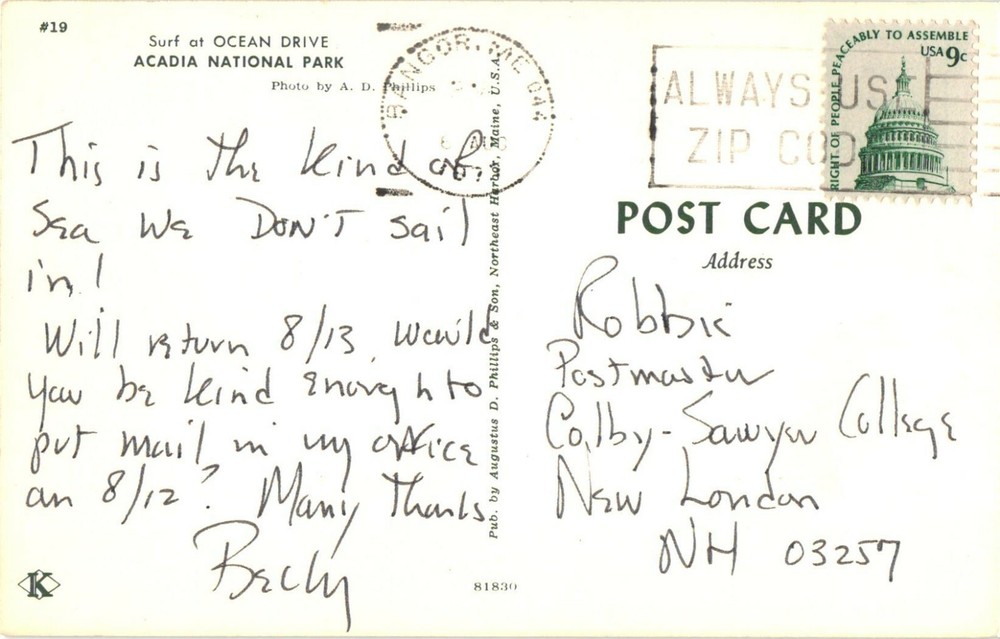 #19
Surf at OCEAN DRIVE
ACADIA NATIONAL PARK
Photo by A. D. Phillips
This is the kind of
Sea we DON'T sail
in!
Will return 8/13. Would
you be kind enough to
put mail in my office
on 8/12? Many Thanks
Becky
K
Pub. by Augustus D. Phillips & Son, Northeast Harbor, Maine, U.S.A.
81830
BANGOR, ME 044
ALWAYS USE
ZIP CODE
RIGHT OF PEOPLE PEACEABLY TO ASSEMBLE
USA 9c
POST CARD
Address
Robbie
Postmaster
Colby-Sawyer College
New London
NH 03257